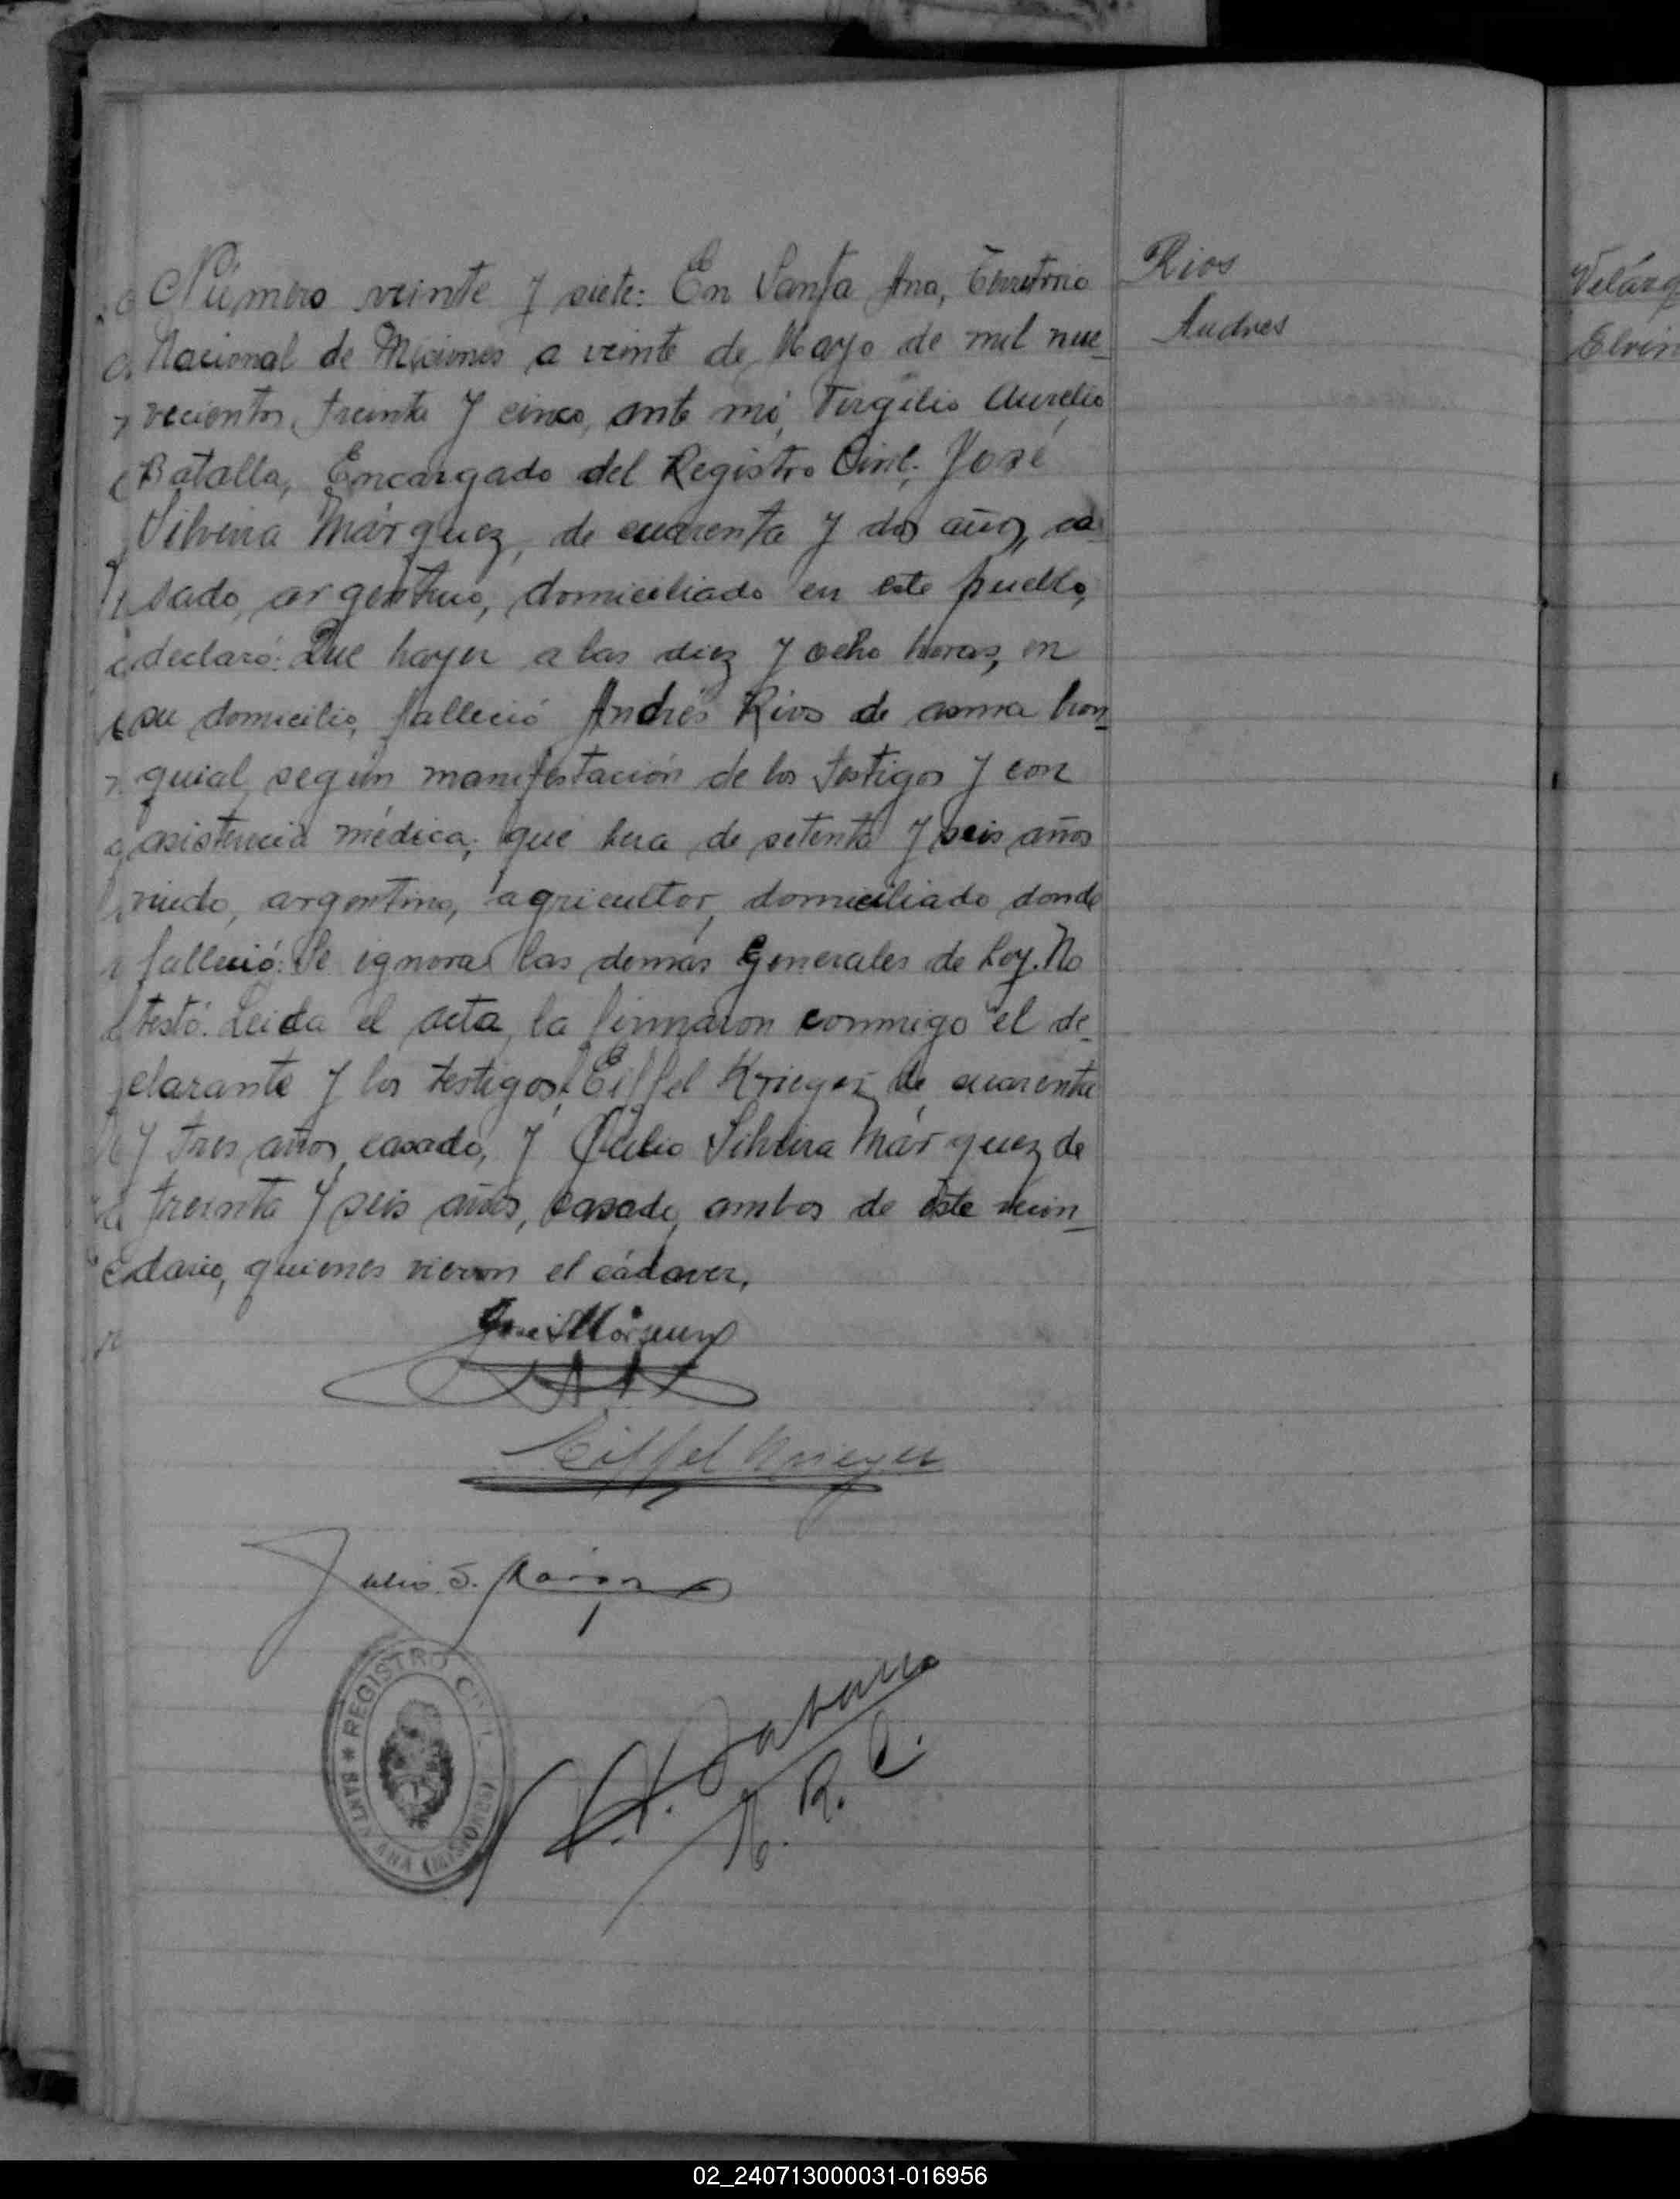 Número veinte y siete: En Santa Ana, Territorio
Nacional de Misiones a veinte de Mayo de mil nue-
vecientos treinta y cinco, ante mí, Virgilio Aurelio
Batalla, Encargado del Registro Civil; José
Silveira Márquez, de cuarenta y dos años, ca-
sado, argentino, domiciliado en este pueblo,
declaró: Que hayer a las diez y ocho horas, en
su domicilio, falleció Andrés Rios de asma bron-
quial según manifestación de los testigos y con
asistencia médica; que hera de setenta y seis años
viudo, argentino, agricultor, domiciliado donde
falleció: Se ignora las demás generales de Ley. No
testó. Leida el acta, la firmaron conmigo el de-
clarante y los testigos: Eiffel Krieger de cuarenta
y tres años, casado, y Julio Silveira Márquez de
treinta y seis años, casado, ambos de este vecin-
dario, quienes vieron el cádaver.
José S Márquez
Eiffel Krieger
Julio S.
REGISTRO CIVIL
* SANTA ANA (MISIONES)
E. R. C.
Rios
Andres
Velázq
Elvir
02_240713000031-016956